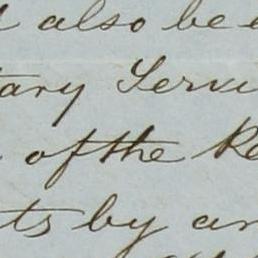 also be
tary Servi
of the Re
ts by an